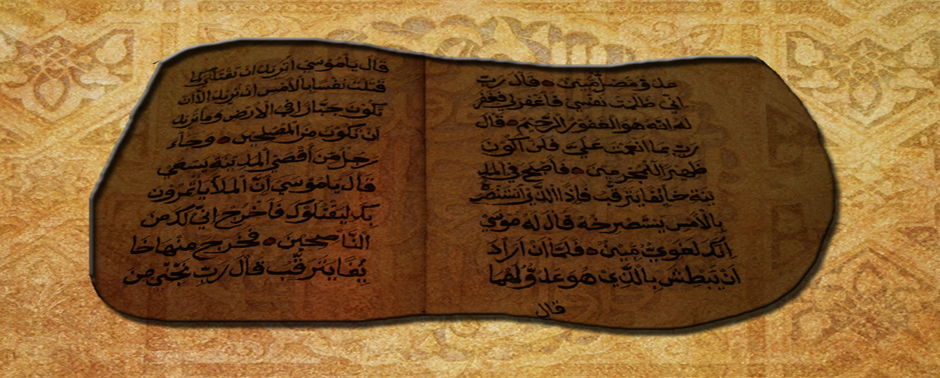 عدو مضل مبين قال رب
اني ظلمت نفسي فاغفرلي فغفر
له انه هو الغفور الرحيم قال
رب بما انعمت علي فلن اكون
ظهيرا للمجرمين فاصبح في المد
ينة خايفا يترقب فاذا الذي استنصره
بالامس يستصرخه قال له موسي
انك لغوي مبين فلما ان اراد
ان يبطش بالذي هو عدو لهما
قال
قال ياموسي اتريد ان تقتلني كما
قتلت نفسا بالامس ان تريد الا ان
تكون جبارا في الارض وما تريد
ان تكون من المصلحين وجاء
رجل من اقصي المدينة يسعي
قال ياموسي ان الملا ياتمرون
بك ليقتلوك فاخرج اني لك من
الناصحين فخرج منها خا
يفا يترقب قال رب نجني من